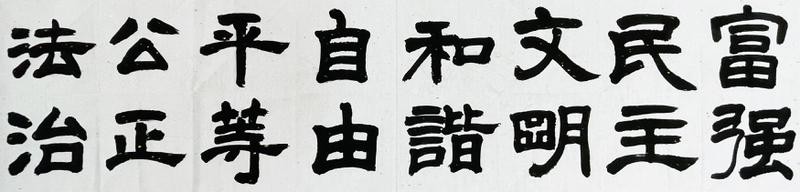 富强
民主
文明
和諧
自由
平等
公正
法治